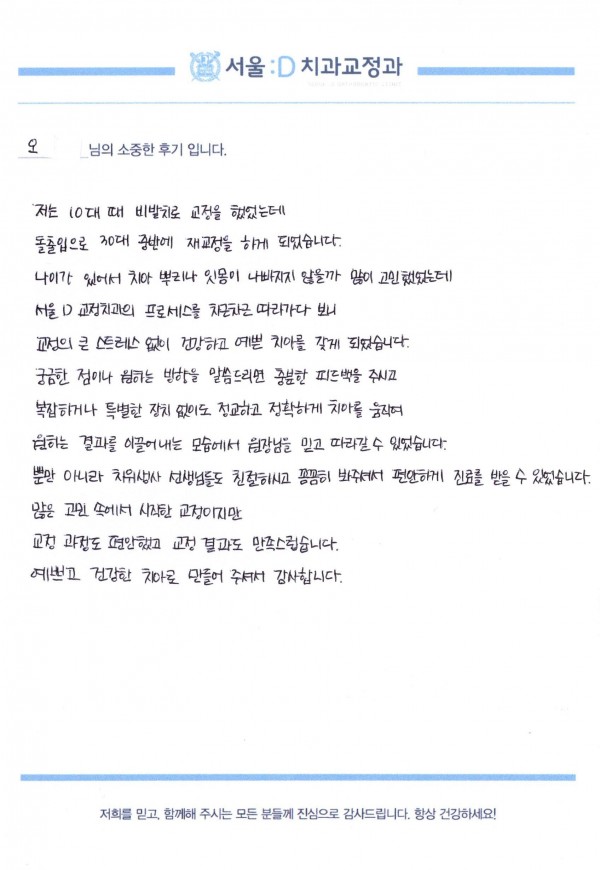 서울:D 치과교정과
오 님의 소중한 후기 입니다.
저는 10대 때 비발치로 교정을 했었는데
돌출입으로 30대 중반에 재교정을 하게 되었습니다.
나이가 있어서 치아 뿌리나 잇몸이 나빠지지 않을까 많이 고민했었는데
서울 D 교정치과의 프로세스를 차근차근 따라가다 보니
교정의 큰 스트레스 없이 건강하고 예쁜 치아를 갖게 되었습니다.
궁금한 점이나 원하는 방향을 말씀드리면 충분한 피드백을 주시고
복잡하거나 특별한 장치 없이도 정교하고 정확하게 치아를 움직여
원하는 결과를 이끌어내는 모습에서 원장님을 믿고 따라갈 수 있었습니다.
뿐만 아니라 치위생사 선생님들도 친절하시고 꼼꼼히 봐주셔서 편안하게 진료를 받을 수 있었습니다.
많은 고민 속에서 시작한 교정이지만
교정 과정도 편안했고 교정 결과도 만족스럽습니다.
예쁘고 건강한 치아로 만들어 주셔서 감사합니다.
저희를 믿고, 함께해 주시는 모든 분들께 진심으로 감사드립니다. 항상 건강하세요!